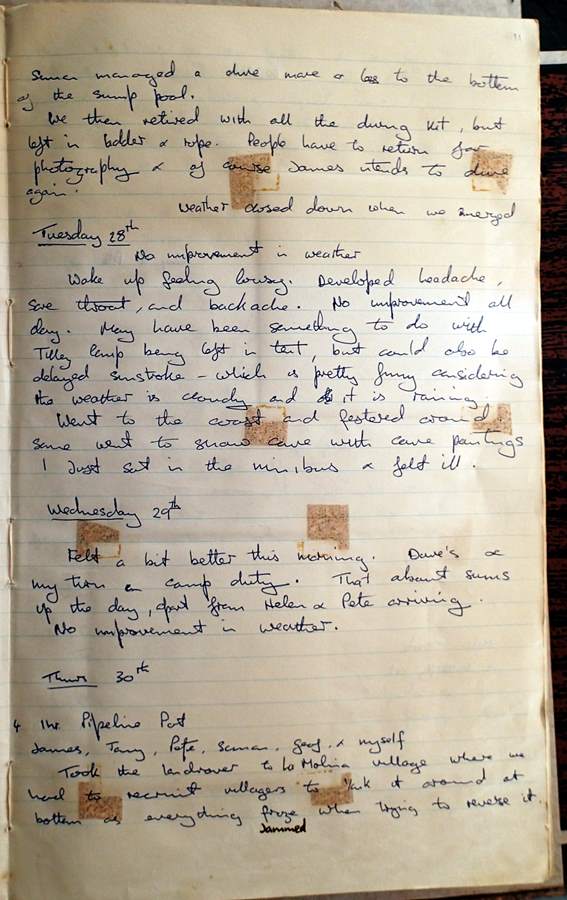 Simon managed a dive more or less to the bottom
of the sump pool.
We then retired with all the diving kit, but
left in ladder & rope. People have to return for
photography & of course James intends to dive
again.
Weather closed down when we emerged
Tuesday 28th
No improvement in weather
Wake up feeling lousy. Developed headache,
sore throat, and backache. No improvement all
day. May have been something to do with
Tilley lamp being left in tent, but could also be
delayed sunstroke - which is pretty funny considering
the weather is cloudy and it is raining.
Went to the coast and festered around
some went to show cave with cave paintings
I Just sat in the minibus & felt ill.
Wednesday 29th
Felt a bit better this morning. Dave's &
my turn on camp duty. That about sums
up the day, apart from Helen & Pete arriving.
No improvement in weather.
Thurs 30th
4 1hr. Pipeline Pot
James, Tony, Pete, Simon, Geoff, & myself
Took the landrover to La Molina village where we
had to recruit villagers to yank it around at
bottom as everything froze when trying to reverse it.
Jammed